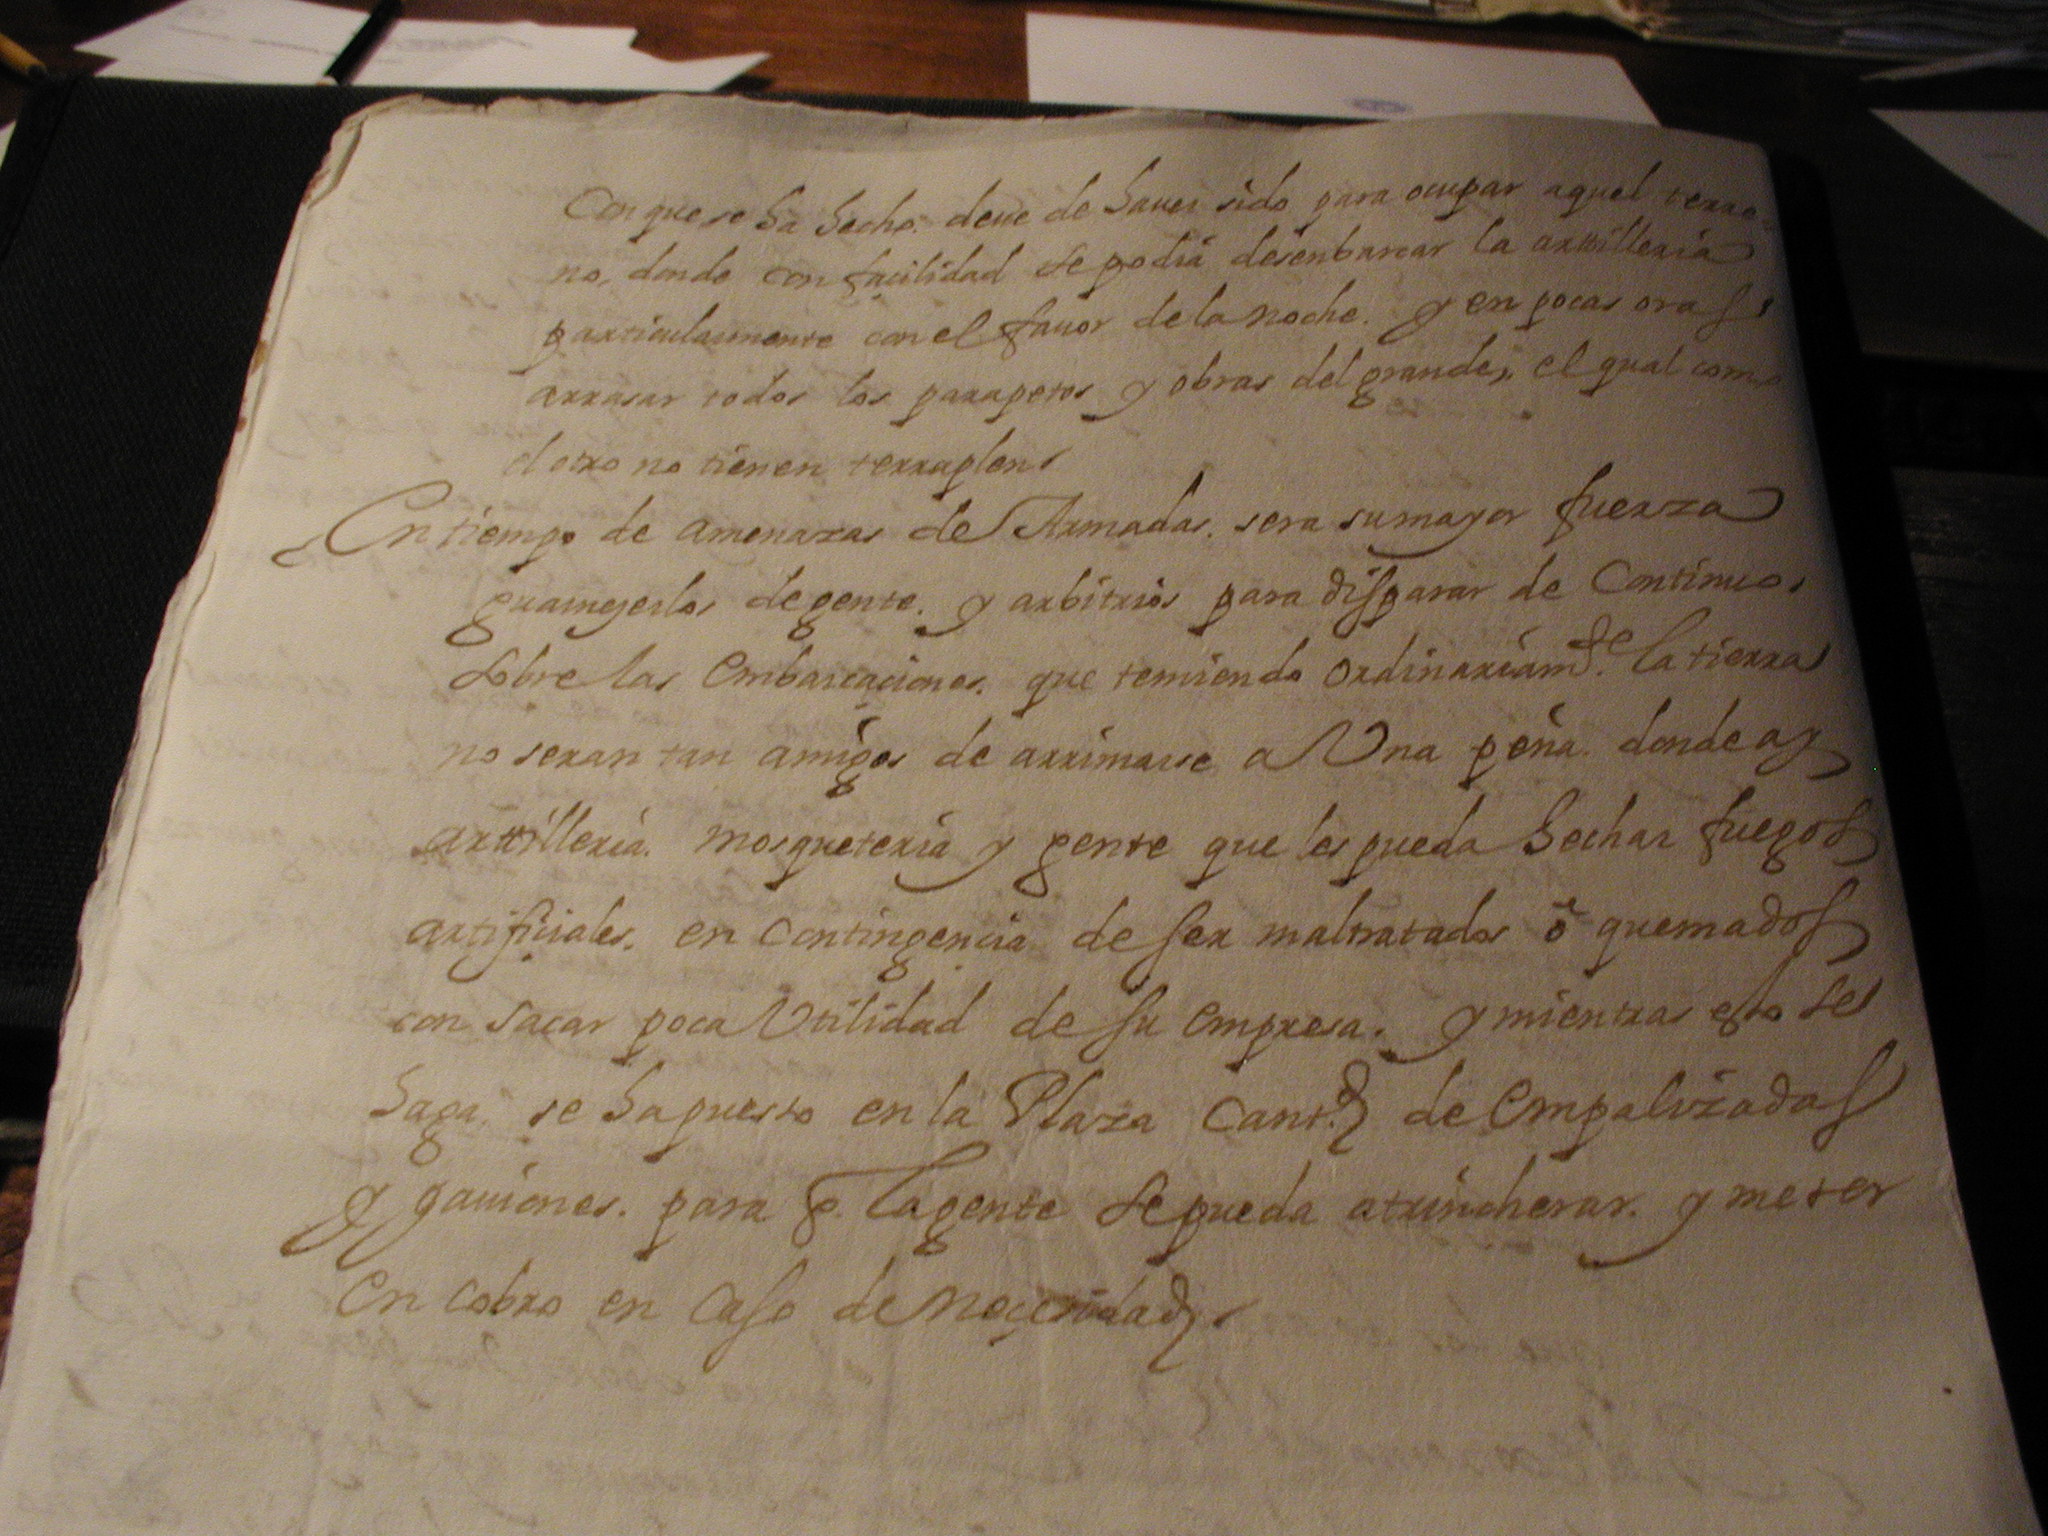 Con que se ha hecho. deue de hauer sido para ocupar aquel terre-
no, donde con facilidad se podia desenbarcar la artilleria
particularmente con el fauor de la noche. y en pocas oras
arrasar todos los parapetos y obras del grande, el qual como
el otro no tienen terraplens
En tiempo de amenazas de Armadas. sera su mayor fuerza
guarneçerlos de gente. y arbitrios para disparar de Continuo
sobre las Embarcaciones. que temiendo ordinariam.te la tierra
no seran tan amigos de arrimarse a Una peña. donde ay
artilleria. mosqueteria y gente que les pueda hechar fuegos
artificiales. en contingencia de ser maltratados ò quemados
con sacar poca Utilidad de su empresa. y mientras esto se
haga. se ha puesto en la Plaza Cant.d de Empalizadas
y gauiones. para q. la gente se pueda atrincherar. y meter
en cobro en Caso de neçesidad.